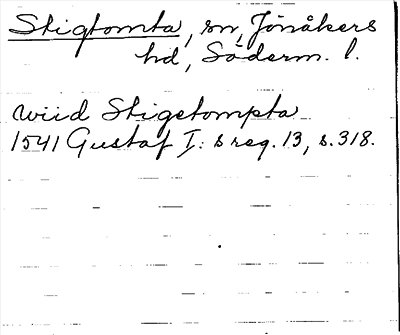 Stigtomta, sn, Jönåkers
hd, Söderm. l.
wiid Stigetompta
1541 Gustaf I: s reg. 13, s. 318.